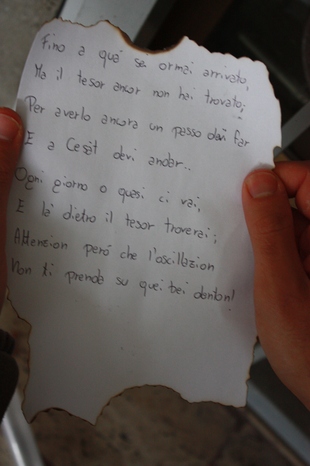 Fino a quà se ormai arrivato,
Ma il tesor ancor non hai trovato;
Per averlo ancora un passo devi far
E a Cesät devi andar..
Ogni giorno o quasi ci vai,
E là dietro il tesor troverai;
Attenzion però che l'oscillazion
Non ti prenda su quei bei denton!